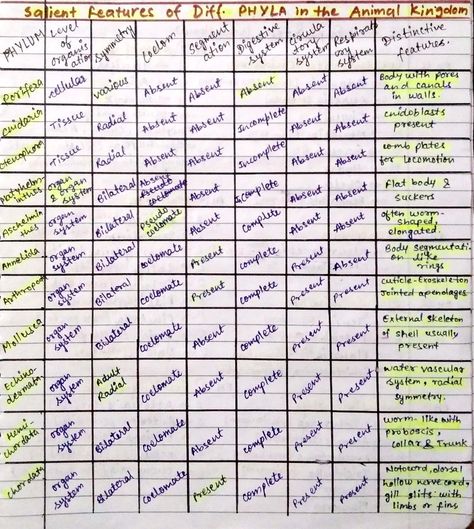 Salient Features of Diff. PHYLA in the Animal Kingdom
PHYLUM Level of organis ation Symmetry Coelom Segment ation Digestive system Circula tory system Respirat ory system Distinctive features.
Porifera cellular various Absent Absent Absent Absent Absent Body with pores and canals in walls.
Cnidaria Tissue Radial Absent Absent Incomplete Absent Absent cnidoblasts present
Ctenophora Tissue Radial Absent Absent Incomplete Absent Absent comb plates for locomotion
organ & organ system Bilateral Absent Incomplete Absent Absent Flat body & suckers
Aschelmin thes organ system Bilateral Pseudo coelomate Absent complete Absent Absent often worm- shaped, elongated.
Annelida organ system Bilateral coelomate Present complete Present Absent Body segmentati on like rings
organ system Bilateral coelomate Present complete Present Present cuticle-Exoskeleton Jointed
Mollusca organ system Bilateral coelomate Absent complete Present Present External Skeleton of shell usually present
Echino dermata organ system Adult Radial coelomate Absent complete Present Present water vascular system, radial symmetry.
Hemi- chordata organ system Bilateral coelomate Absent complete Present Present worm-like with proboscis, collar & Trunk
chordata organ system Bilateral coelomate Present complete Present Present dorsal hollow nerve cord, gill slits with limbs or fins